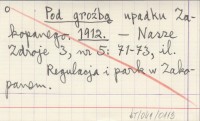 Pod groźbą upadku Za-
kopanego. 1912. — Nasze
Zdroje 3, nr 5: 71-73, il.
Regulacja i park w Zako-
panem.